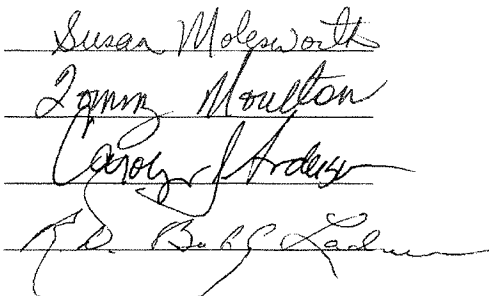 Susan Molesworth
Tommy Moulton
Carolyn J Anderson
R.D.